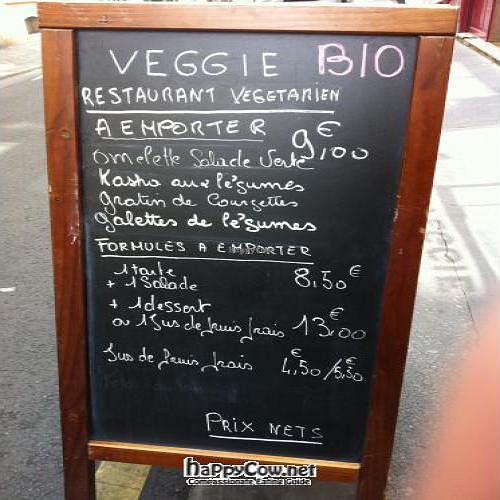 VEGGIE BIO
RESTAURANT VEGETARIEN
A EMPORTER 9,00€
omelette Salade Verte
Kasha aux légumes
Gratin de Courgettes
galettes de légumes
FORMULES A EMPORTER
1 tarte
+ 1 Salade 8,50€
+ 1 dessert
ou 1 Jus de fruis frais 13€00
Jus de fruis frais 4€,50/5€,50
PRIX NETS
happyCow.net
Compassionate Eating Guide